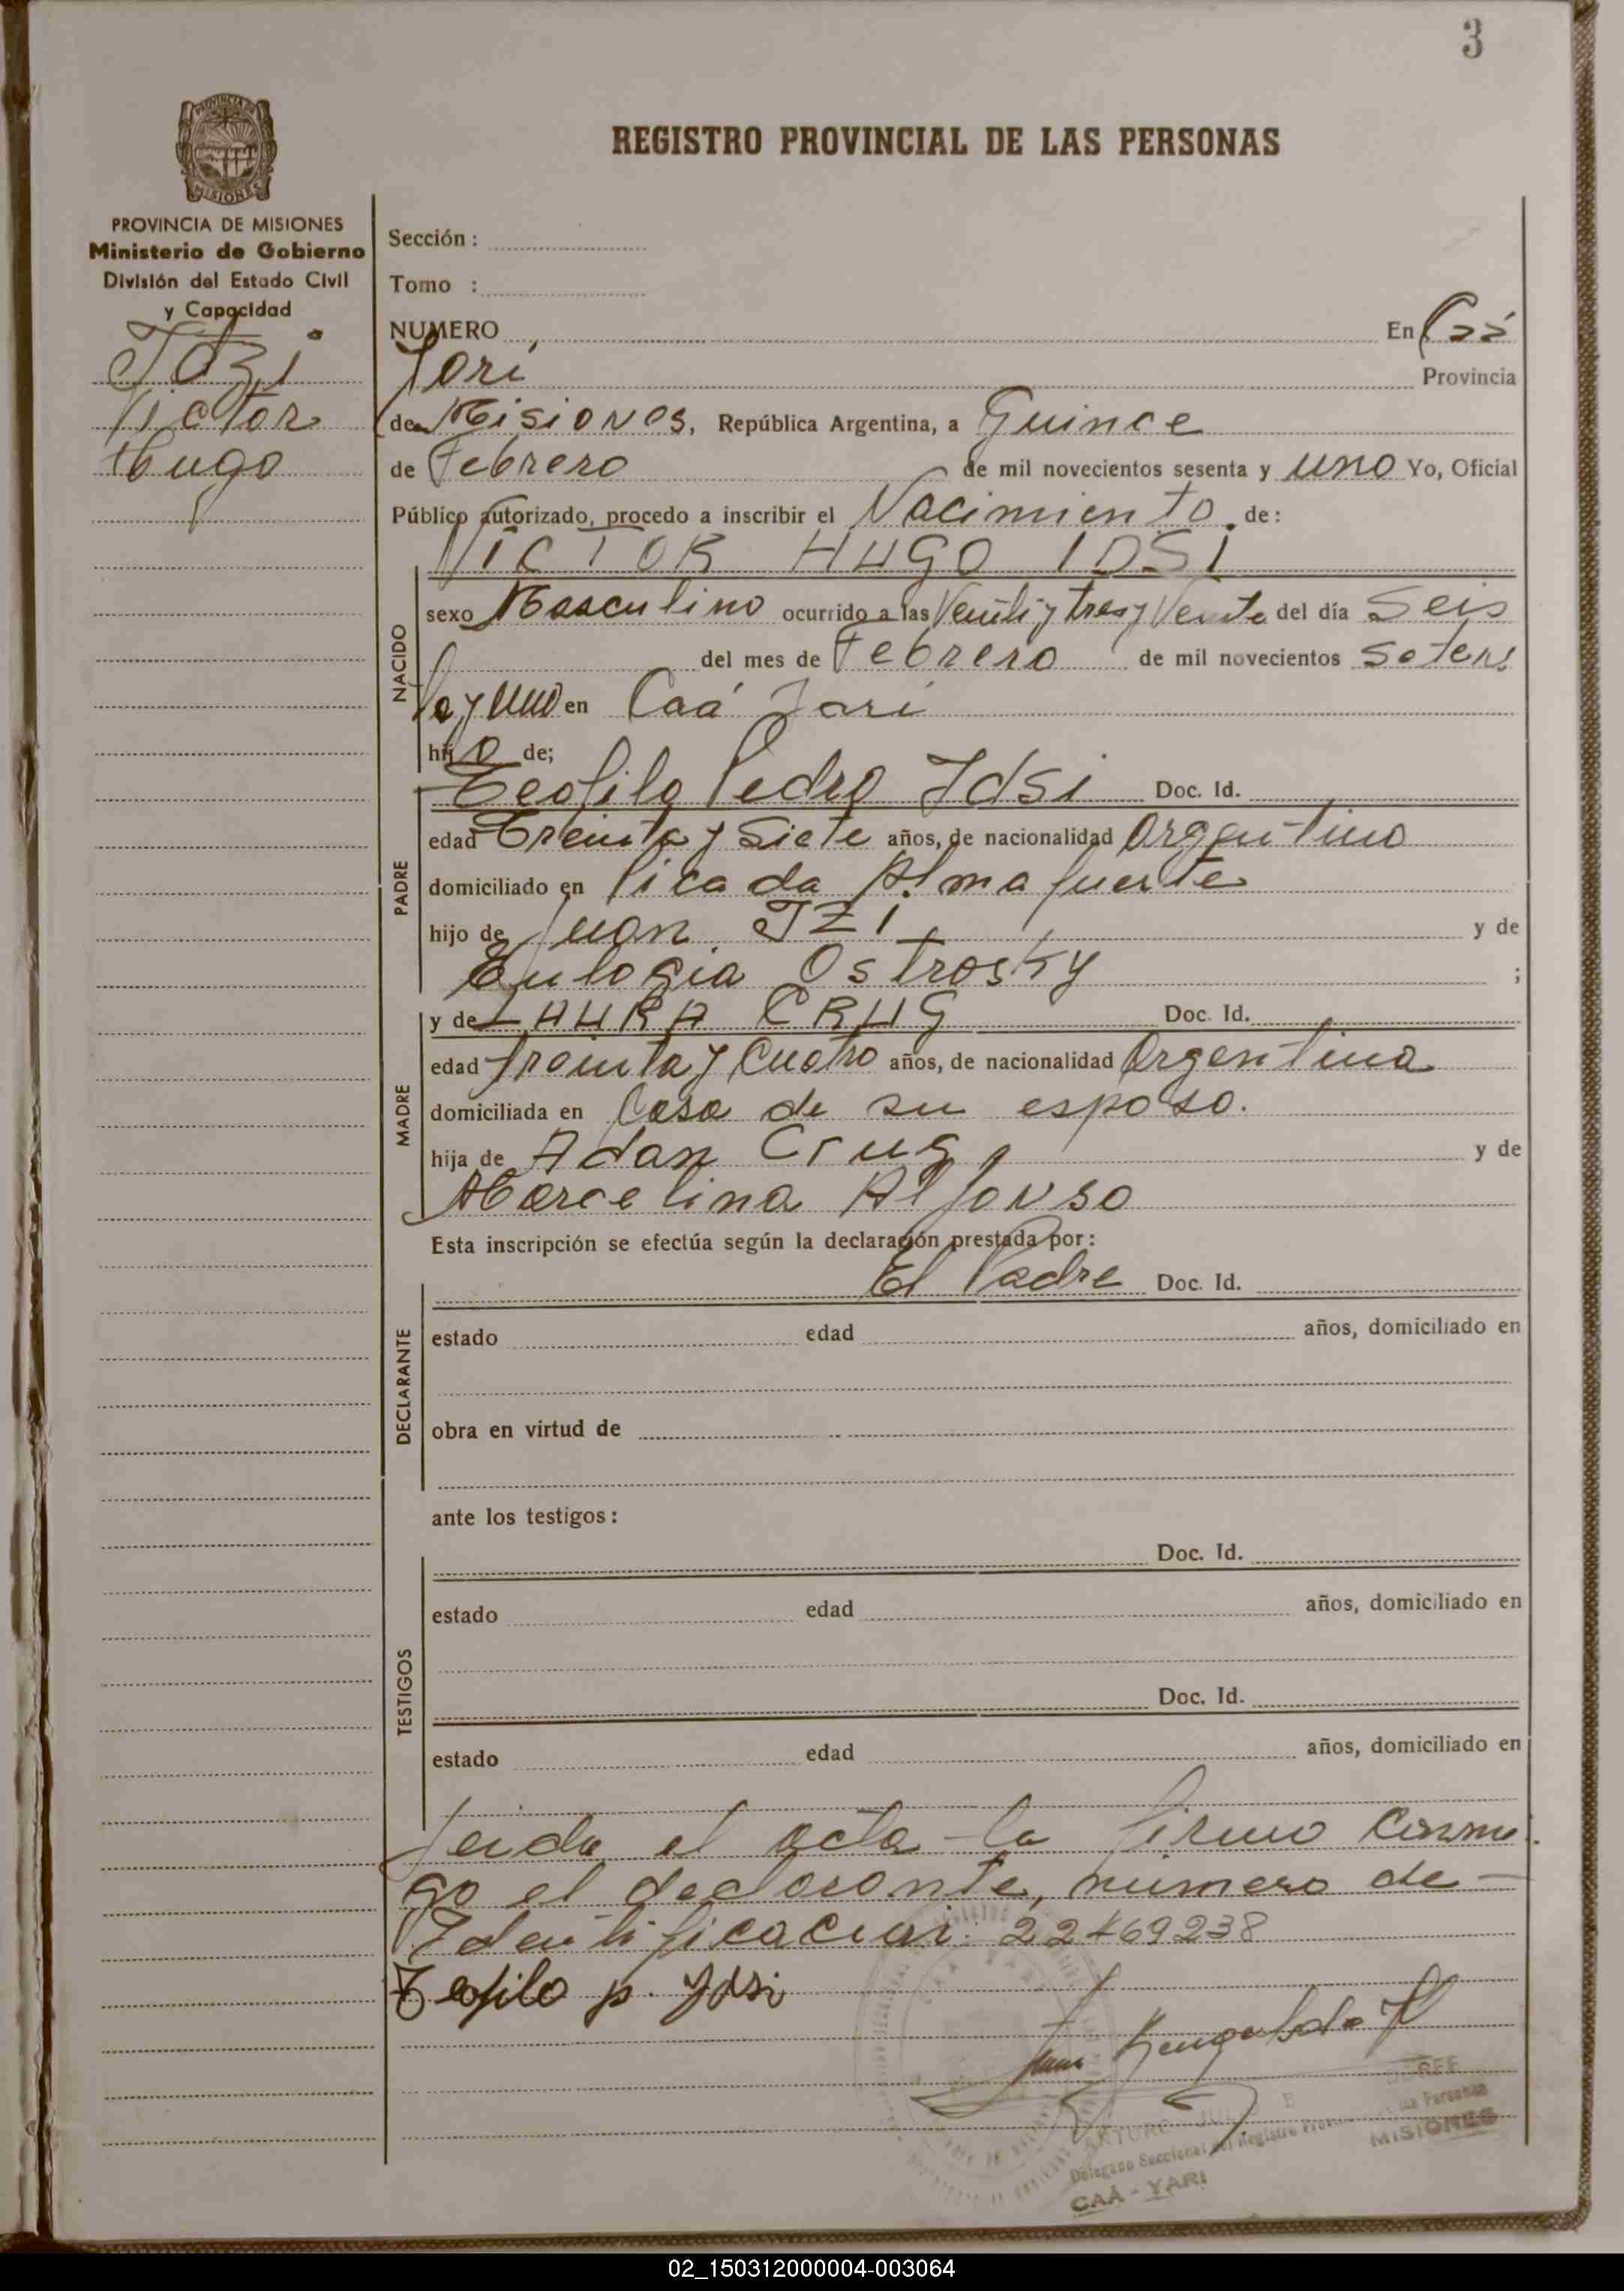 3
REGISTRO PROVINCIAL DE LAS PERSONAS
PROVINCIA DE MISIONES
Ministerio de Gobierno
División del Estado Civil
y Capacidad
Victor
Hugo
Sección :
Tomo :
NUMERO En Caá
Yarí Provincia
de Misiones, República Argentina, a Quince
de Febrero de mil novecientos sesenta y uno Yo, Oficial
Público autorizado, procedo a inscribir el Nacimiento de:
VICTOR HUGO IDSI
NACIDO
sexo Masculino ocurrido a las Veinti y tres y Veinte del día Seis
del mes de Febrero de mil novecientos Seten
ta y uno en Caá Yari
hijo de;
PADRE
Teofilo Pedro Idsi Doc. Id.
edad Treinta y Siete años, de nacionalidad Argentino
domiciliado en Picada Almafuerte
hijo de Juan IZI y de
Eulogia Ostrosky ;
MADRE
y de LAURA CRUG Doc. Id.
edad treinta y Cuatro años, de nacionalidad Argentina
domiciliada en Casa de su esposo.
hija de Adan Crug y de
Marcelina Alfonso
Esta inscripción se efectúa según la declaración prestada por:
DECLARANTE
El Padre Doc. Id.
estado edad años, domiciliado en
obra en virtud de
ante los testigos:
TESTIGOS
Doc. Id.
estado edad años, domiciliado en
Doc. Id.
estado edad años, domiciliado en
Leida el acta la firmo conmi
go el declarante, número de
Identificacion: 22469238
Teofilo p. Idsi
ARTURO
Delegado Seccional del Registro
MISIONES
CAÁ - YARI
02_150312000004-003064